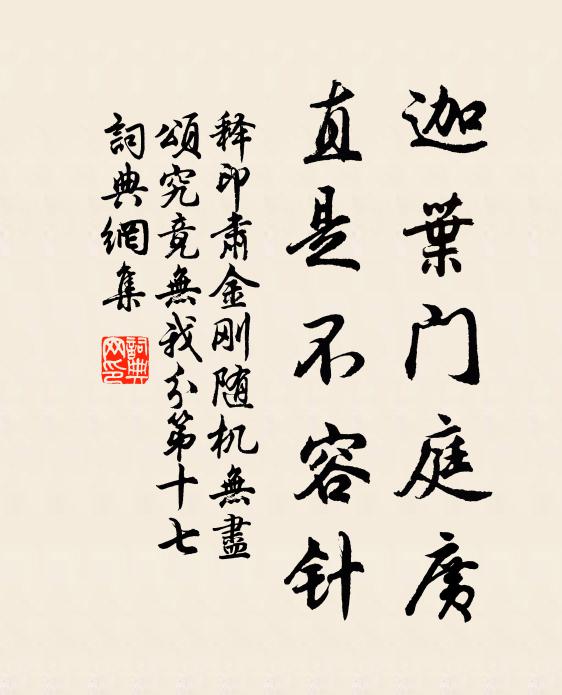 迦葉门庭廣
直是不容针
释印肃金刚随机無盡
頌究竟無我分第十七
詞典網集
詞典網印